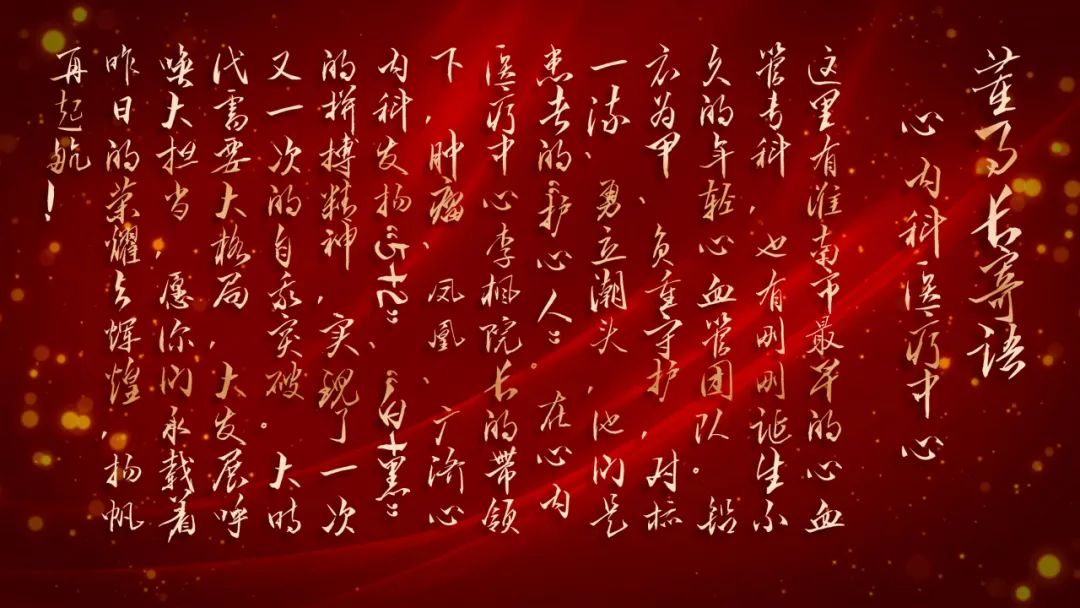 董事长寄语
心内科医疗中心
这里有淮南市最早的心血
管专科，也有刚刚诞生不
久的年轻心血管团队。铅
衣为甲、负重守护，对标
一流、勇立潮头，他们是
患者的“护心人”。在心内
医疗中心李枫院长的带领
下，肿瘤、凤凰、广济心
内科发扬“5+2”、“白+黑”
的拼搏精神，实现了一次
又一次的自我突破。大时
代需要大格局，大发展呼
唤大担当，愿你们承载着
昨日的荣耀与辉煌，扬帆
再起航！